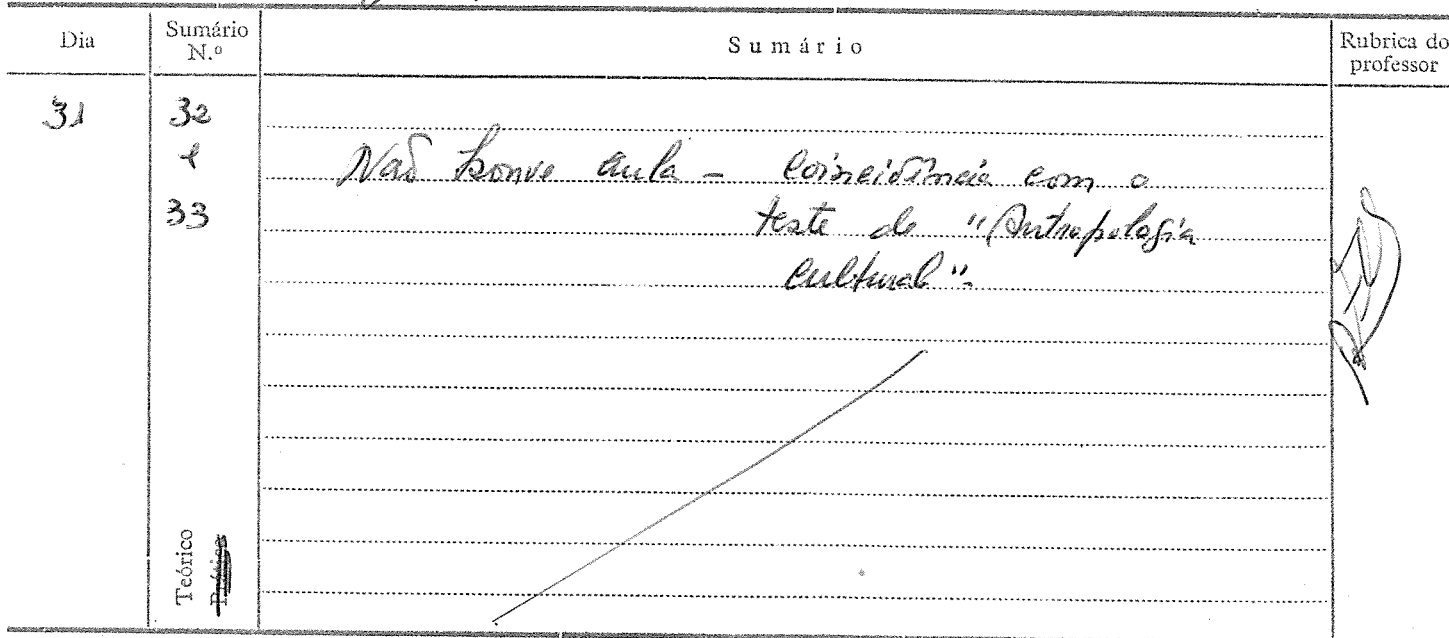 Dia
Sumário N.º
Sumário
Rubrica do professor
31
32
e
33
Não houve aula - coincidência com o
teste de "Antropologia
Cultural".
Teórico